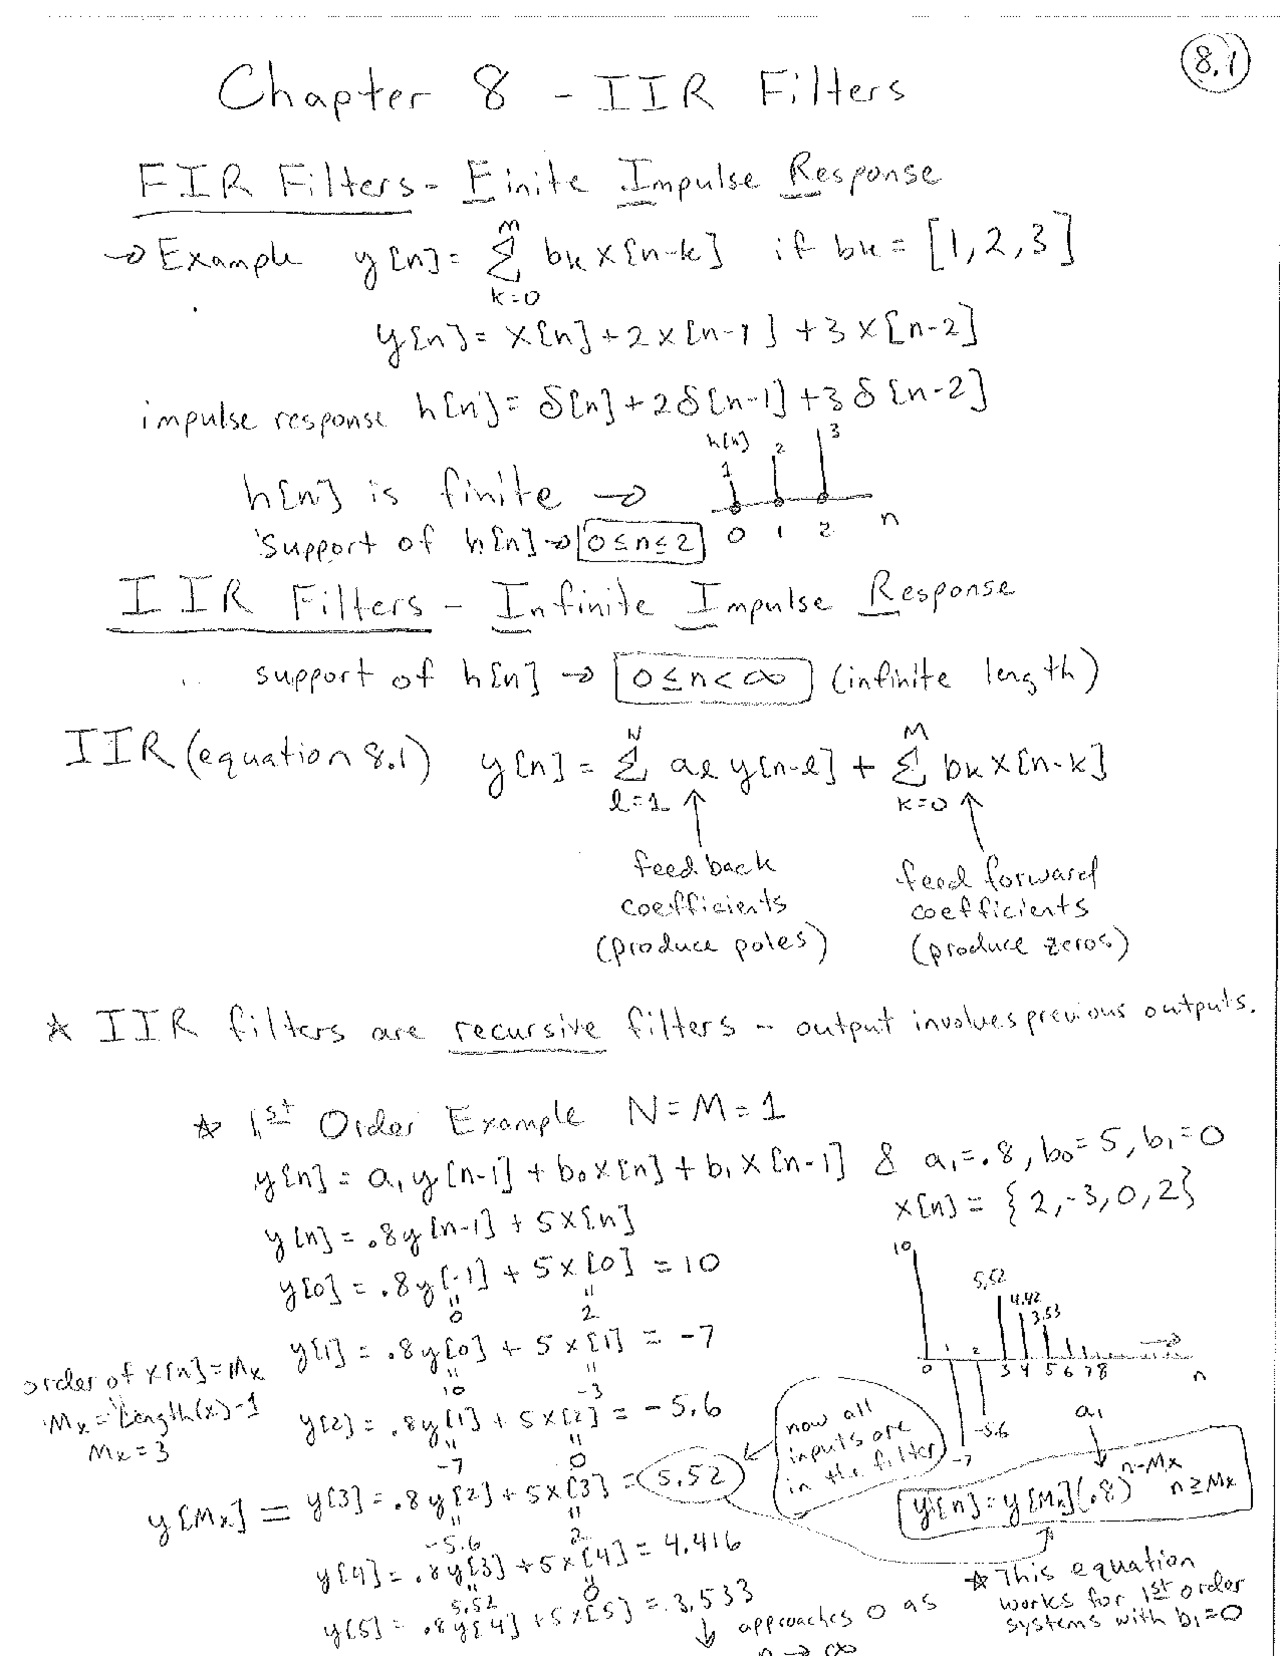 8.1
Chapter 8 - IIR Filters
FIR Filters - Finite Impulse Response
→ Example y[n] = Σ bk x[n-k] if bk = [1,2,3]
M
k=0
y[n] = x[n] + 2x[n-1] + 3x[n-2]
impulse response h[n] = δ[n] + 2δ[n-1] + 3δ[n-2]
h[n] 1 2 3
h[n] is finite →
0 1 2 n
Support of h[n] → 0≤n≤2
IIR Filters - Infinite Impulse Response
support of h[n] → 0≤n<∞ (infinite length)
N M
IIR (equation 8.1) y[n] = Σ aℓ y[n-ℓ] + Σ bk x[n-k]
ℓ=1 k=0
feedback
coefficients
(produce poles)
feed forward
coefficients
(produce zeros)
★ IIR filters are recursive filters - output involves previous outputs.
★ 1st Order Example N=M=1
y[n] = a₁y[n-1] + b₀x[n] + b₁x[n-1] & a₁=.8, b₀=5, b₁=0
x[n] = {2,-3,0,2}
y[n] = .8y[n-1] + 5x[n]
y[0] = .8y[-1] + 5x[0] = 10
" "
0 2
y[1] = .8y[0] + 5x[1] = -7
" "
10 -3
order of x[n]=Mx
Mx = Length(x)-1
Mx=3
y[2] = .8y[1] + 5x[2] = -5.6
" "
-7 0
y[Mx] = y[3] = .8y[2] + 5x[3] = 5.52
" "
-5.6 2
y[4] = .8y[3] + 5x[4] = 4.416
" "
5.52 0
y[5] = .8y[4] + 5x[5] = 3.533
↓ approaches 0 as
n→∞
now all
inputs are
in the filter
10
5.52
4.42
3.53
0 1 2 3 4 5 6 7 8 n
-7
-5.6
a₁
y[n] = y[Mx](.8)^n-Mx n≥Mx
★ This equation
works for 1st order
systems with b₁=0